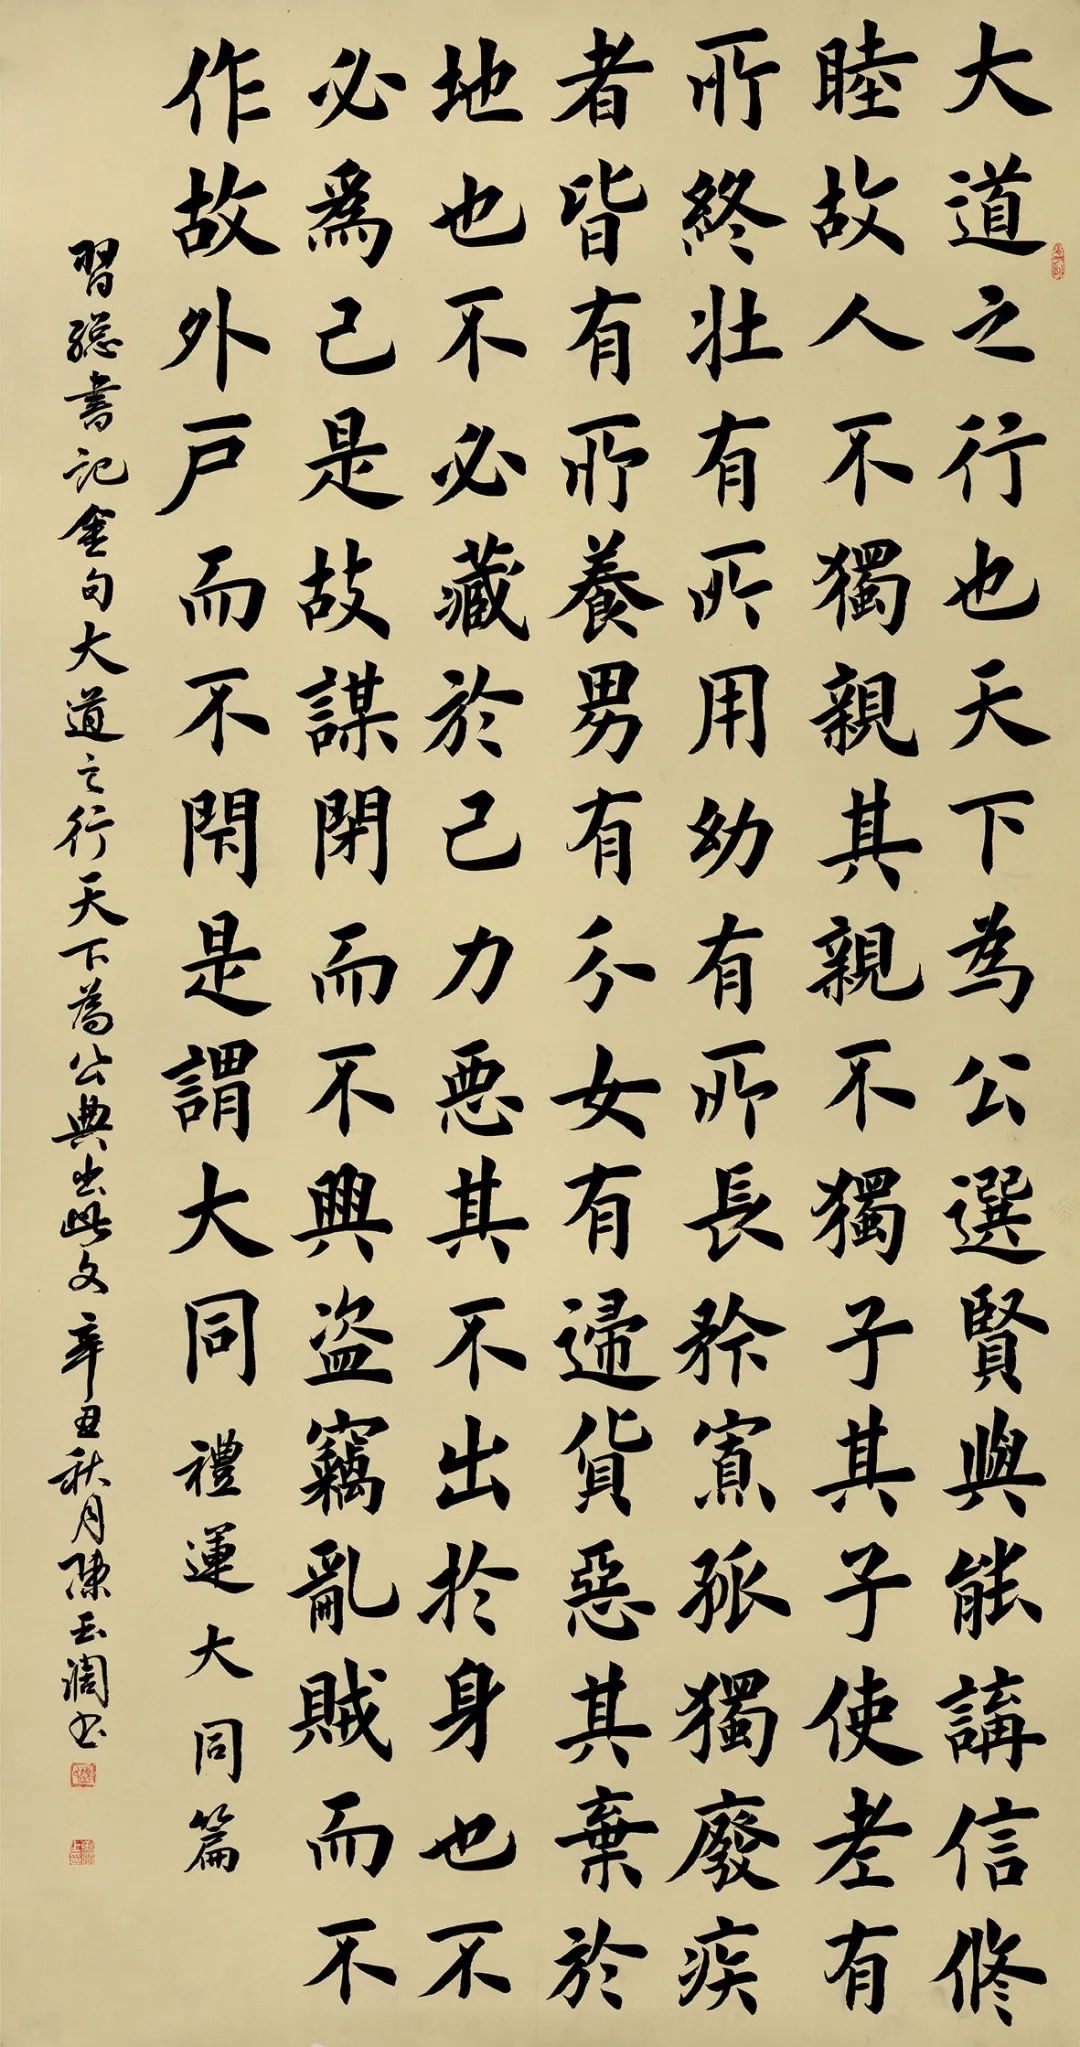 大道之行也天下为公選賢與能講信修
睦故人不獨親其親不獨子其子使老有
所終壯有所用幼有所長矜寡孤獨廢疾
者皆有所養男有分女有歸貨惡其棄於
地也不必藏於己力惡其不出於身也不
必為己是故謀閉而不興盜竊亂賊而不
作故外戶而不閉是謂大同 禮運大同篇
習總書記金句大道之行天下為公典出此文辛丑秋月陳玉潤书